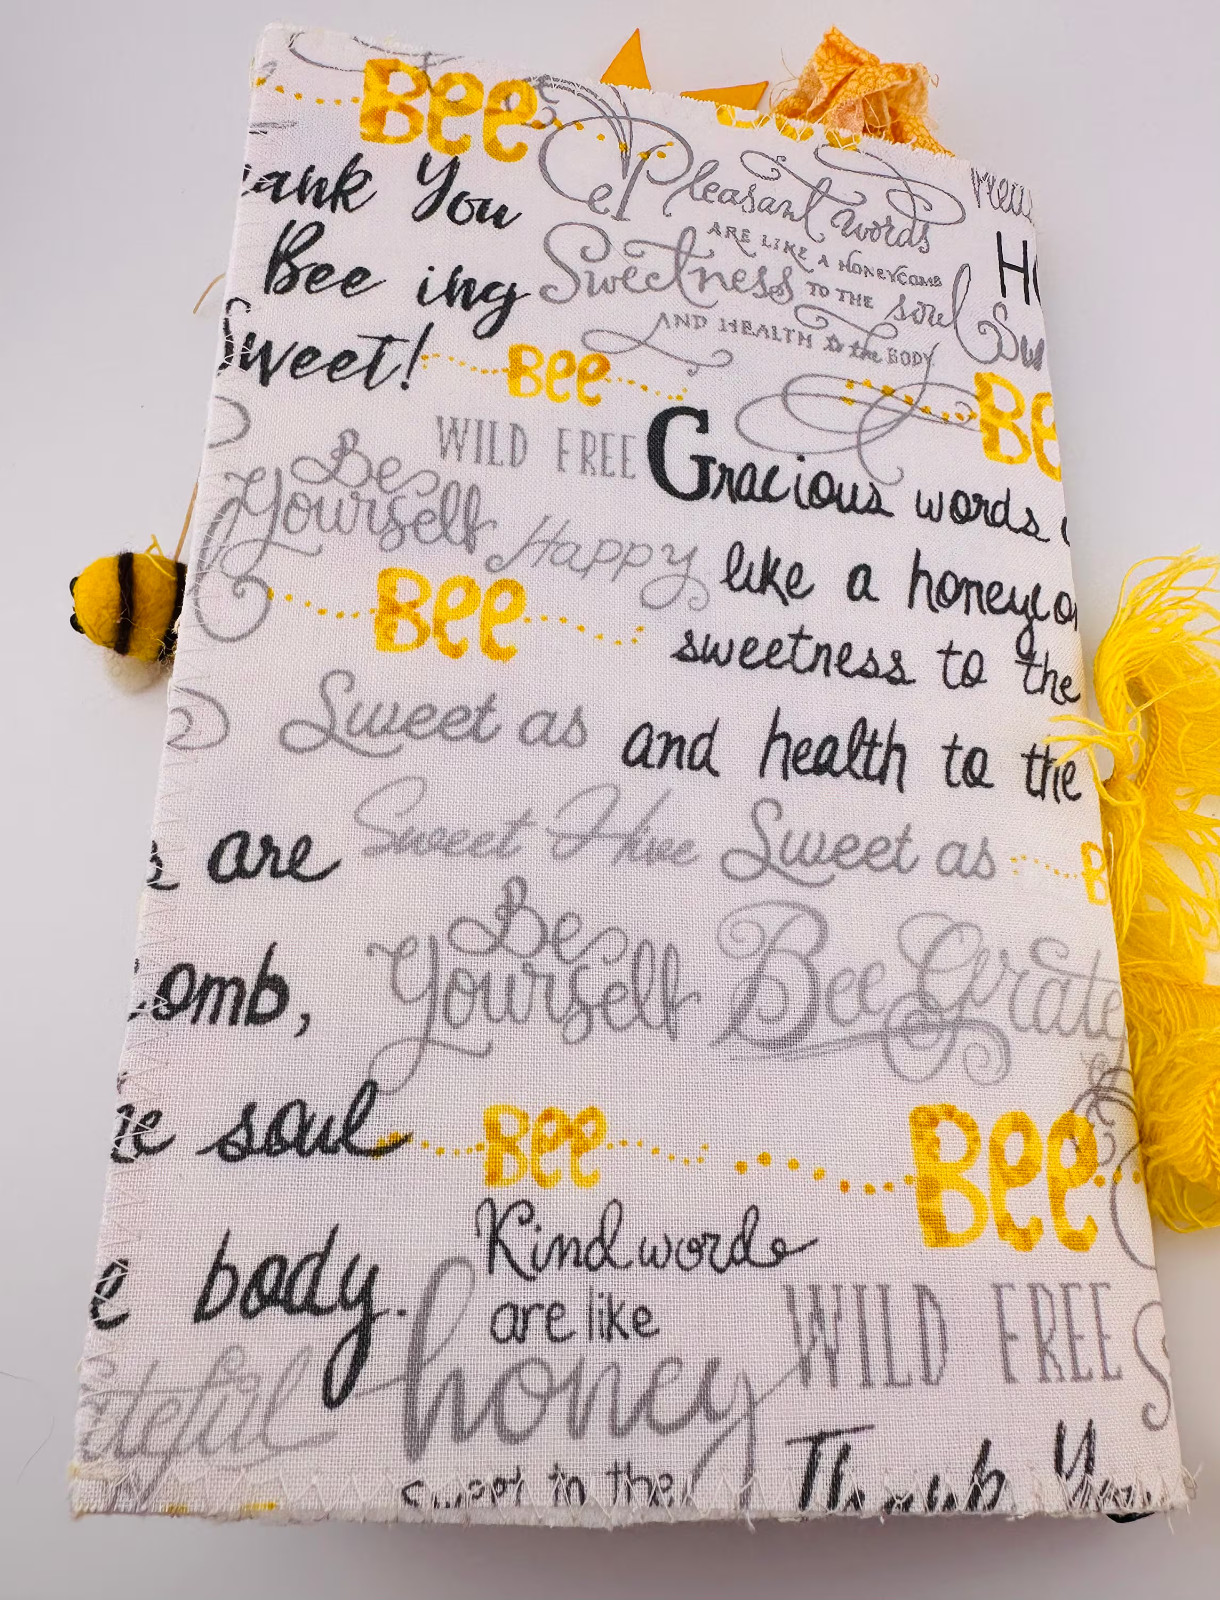 Bee
ank You
Bee ing
Sweet!
Pleasant words
ARE LIKE A HONEYCOMB
Sweetness TO THE soul
AND HEALTH to the BODY
Bee
Be
WILD FREE
Be
Yourself
Happy
Gracious words
like a honeyco
sweetness to the
and health to the
Bee
Sweet as
are
Sweet Hive
Sweet as
B
omb,
Be
Yourself
Bee Grate
e soul
Bee
Bee
e body.
Kind words
are like
honey
WILD FREE
teful
sweet to the
Thank You